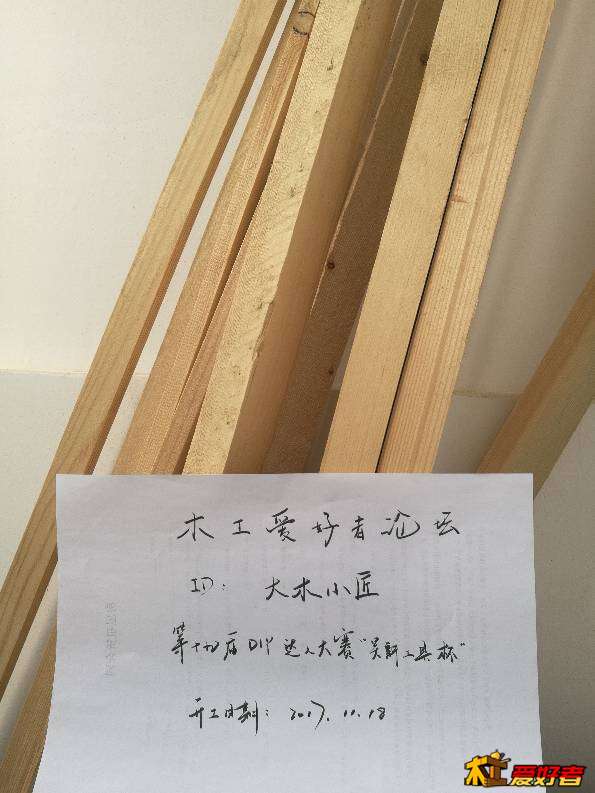 木工爱好者论坛
ID: 大木小匠
第十九届DIY达人大赛"吴新工具杯"
开工日期: 2017.11.18
木工爱好者